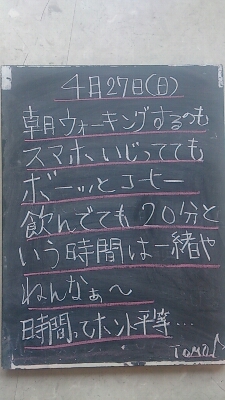 4月27日(日)
朝ウォーキングするのも
スマホいじってても
ボーッとコーヒー
飲んでても20分と
いう時間は一緒や
ねんなぁ〜
時間ってホント平等…
TOMO♪